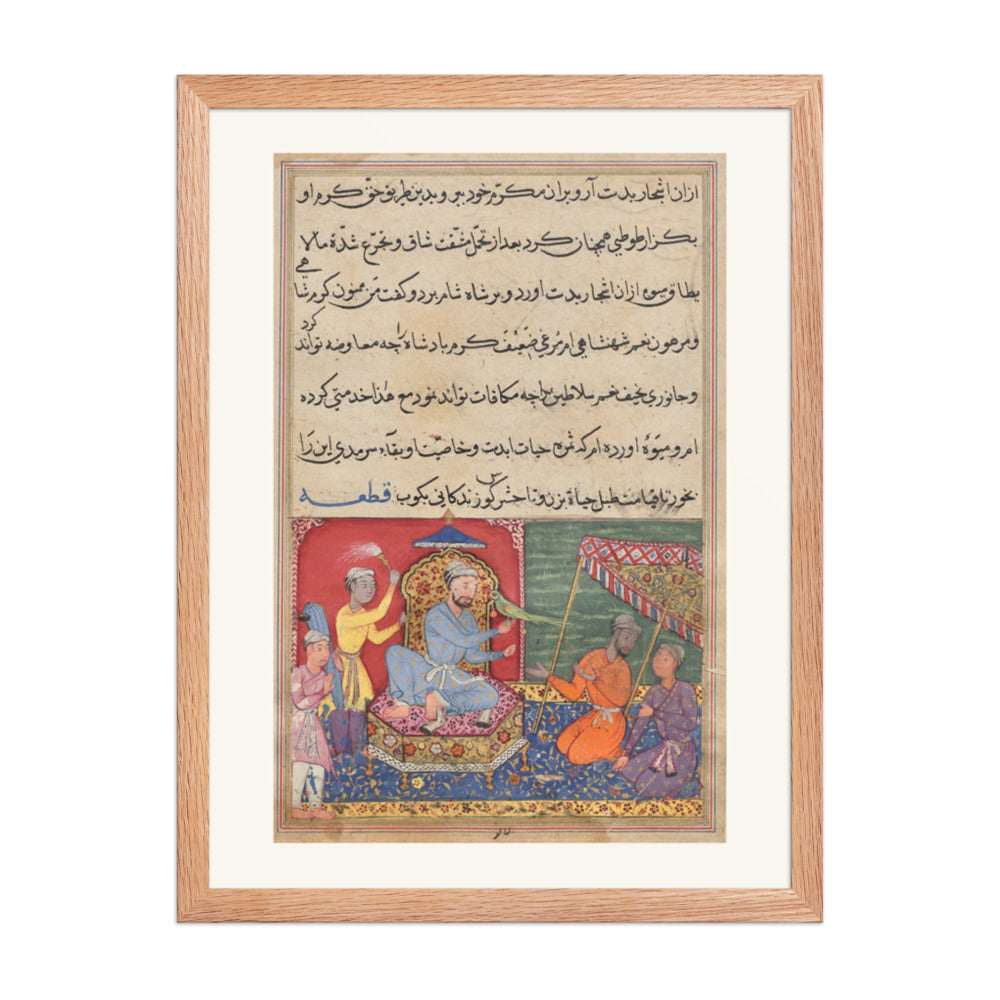 ازان اشجار بدست آرو بران مکرّم خود ببر و بدین طریق حق کرم او
بگزار طوطی همچنان کرد بعد از تحمّل مشقّت شاق و تجرّع شدّة مالا
یطاق میوه ازان اشجار بدست اورد و بر شاه شام برد و گفت من ممنون کرم شاهی
و مرهون نعم شهنشاهی ام مرغی ضعیف کرم بادشاه را چه معاوضه تواند کرد
و جانوری نحیف نعم سلاطین را چه مکافات تواند نمود مع هذا خدمتی کرده
ام و میوهٔ اورده ام که ثمره حیات ابدست و خاصیت او بقاء سرمدی این را
بخور تا قیامت طبل حیاة بزن و تا حشر کوس زندکانی بکوب قطعه